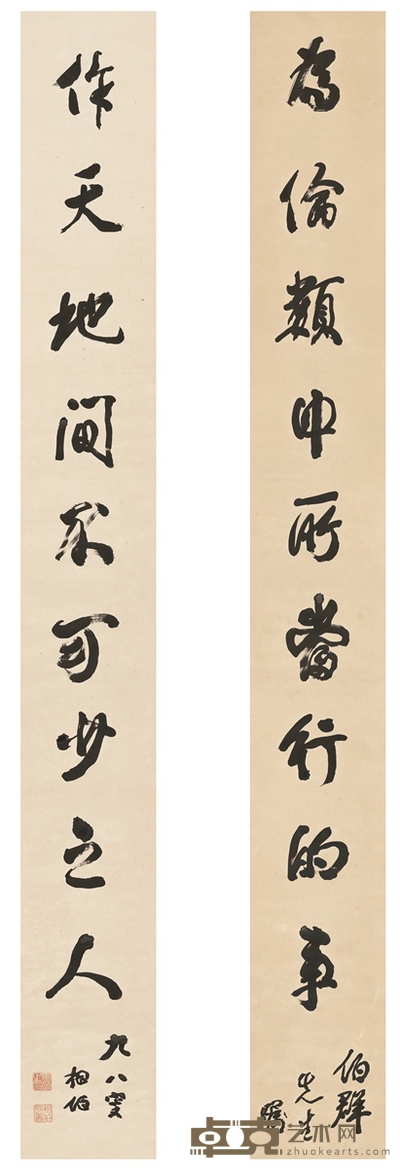 為倫類中所當行的事
伯群
先生
屬
作天地間不可少之人
九八叟
相伯
卓克艺术网
zhuokearts.com